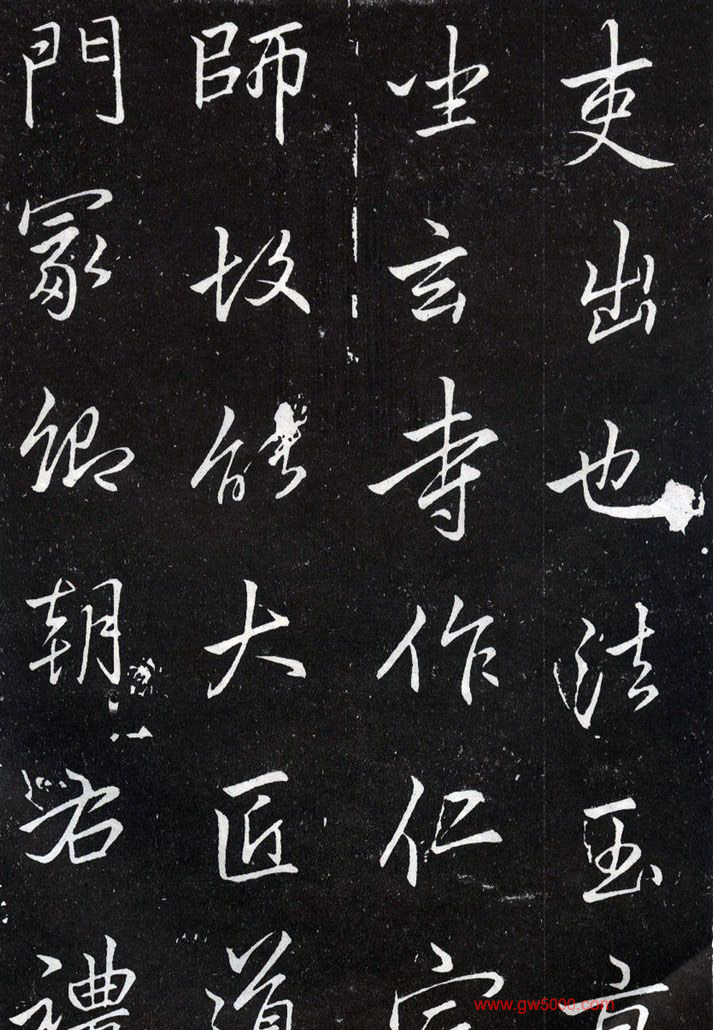 吏出也法玉京
坐玄寺作仁宗
師故能大匠道
門冢卿朝右禮
www.gw5000.com